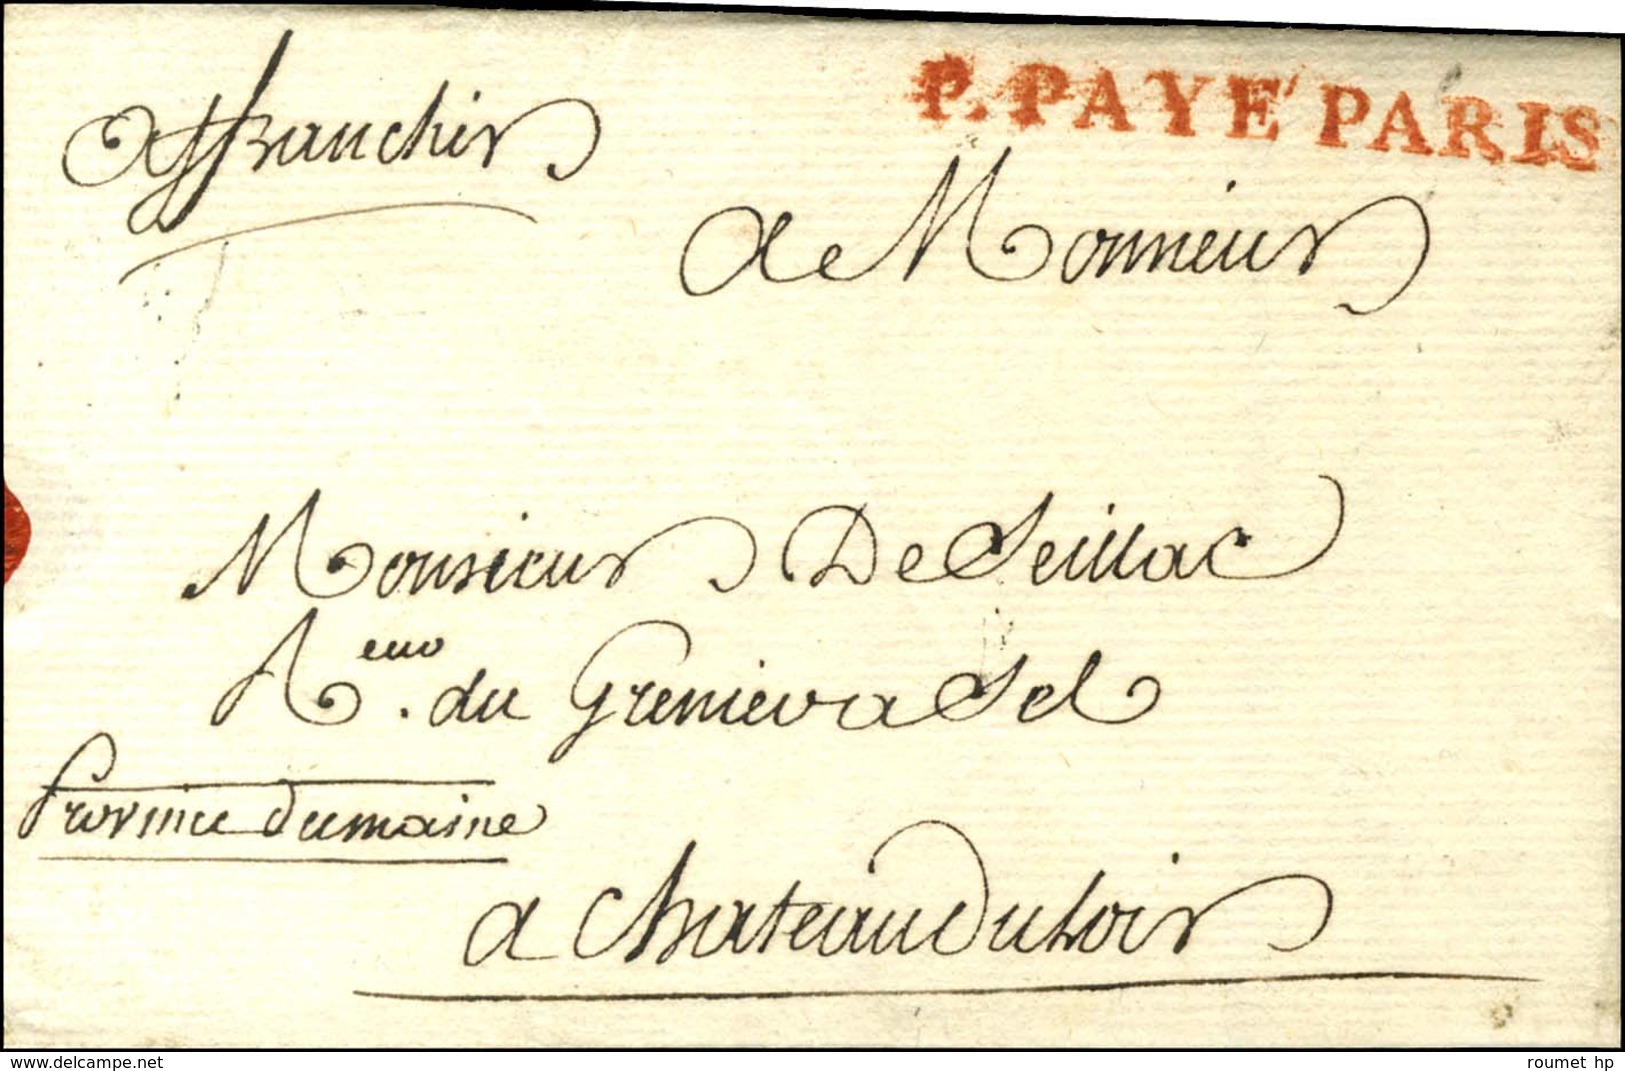 P. PAYÉ PARIS
affranchir
a Monsieur
Monsieur De Seillac
R.eur du Grenier a Sel
Province dumaine
a Chateauduloir
www.delcampe.net
roumet hp